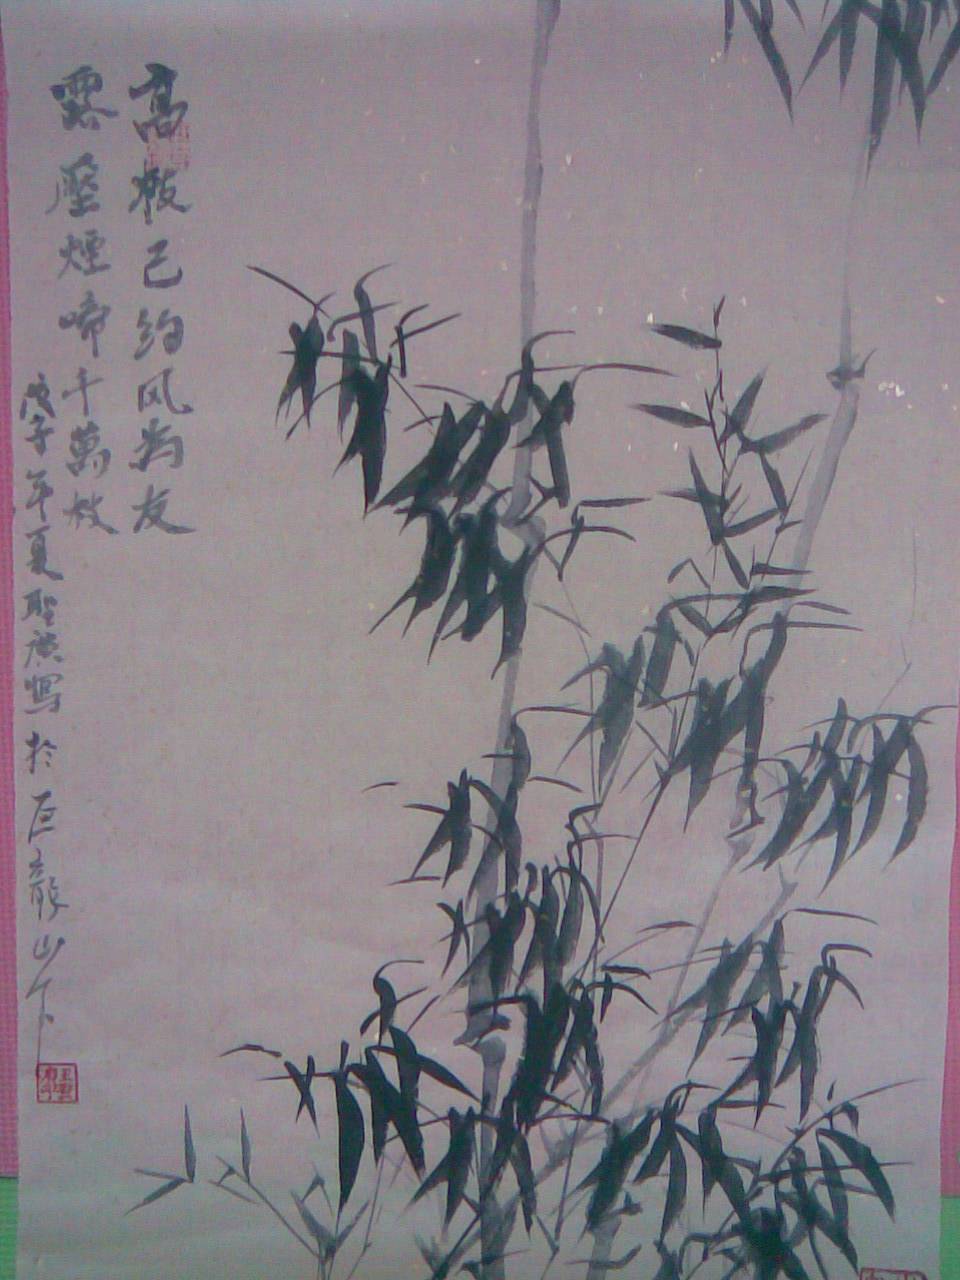 高枝已约风为友
露壓煙啼千萬枝
戊子年夏聖广寫於巨龍山下